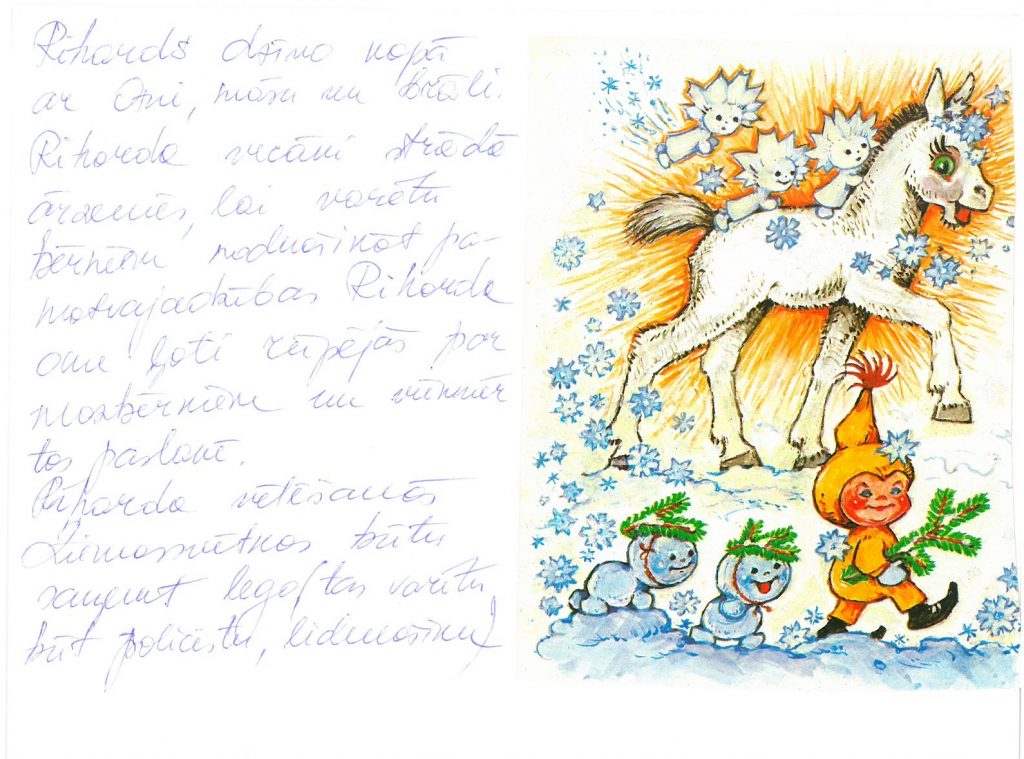 Rihards dzīvo kopā
ar Omi, māsu un brāli.
Riharda vecāki strādā
ārzemēs, lai varētu
bērniem nodrošināt pa-
matvajadzības Riharda
ome ļoti rūpējās par
mazbērniem un vienmēr
tos paslavē.
Riharda vēlēšanās
Ziemassvētkos būtu
saņemt lego (tas varētu
būt policistu, lidmašīnu)